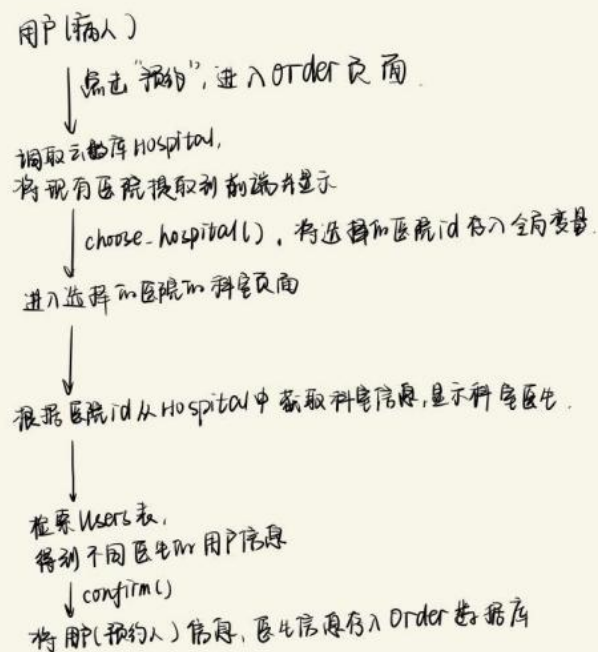 用户(病人)
点击“预约”,进入order页面.
调取云数库Hospital,
将现有医院提取到前端并显示
choose_hospital(),将选择的医院id存入全局变量.
进入选择的医院的科室页面
根据医院id从Hospital中获取科室信息,显示科室医生.
检索Users表,
得到不同医生的用户信息
confirm()
将用户(预约人)信息,医生信息存入Order数据库